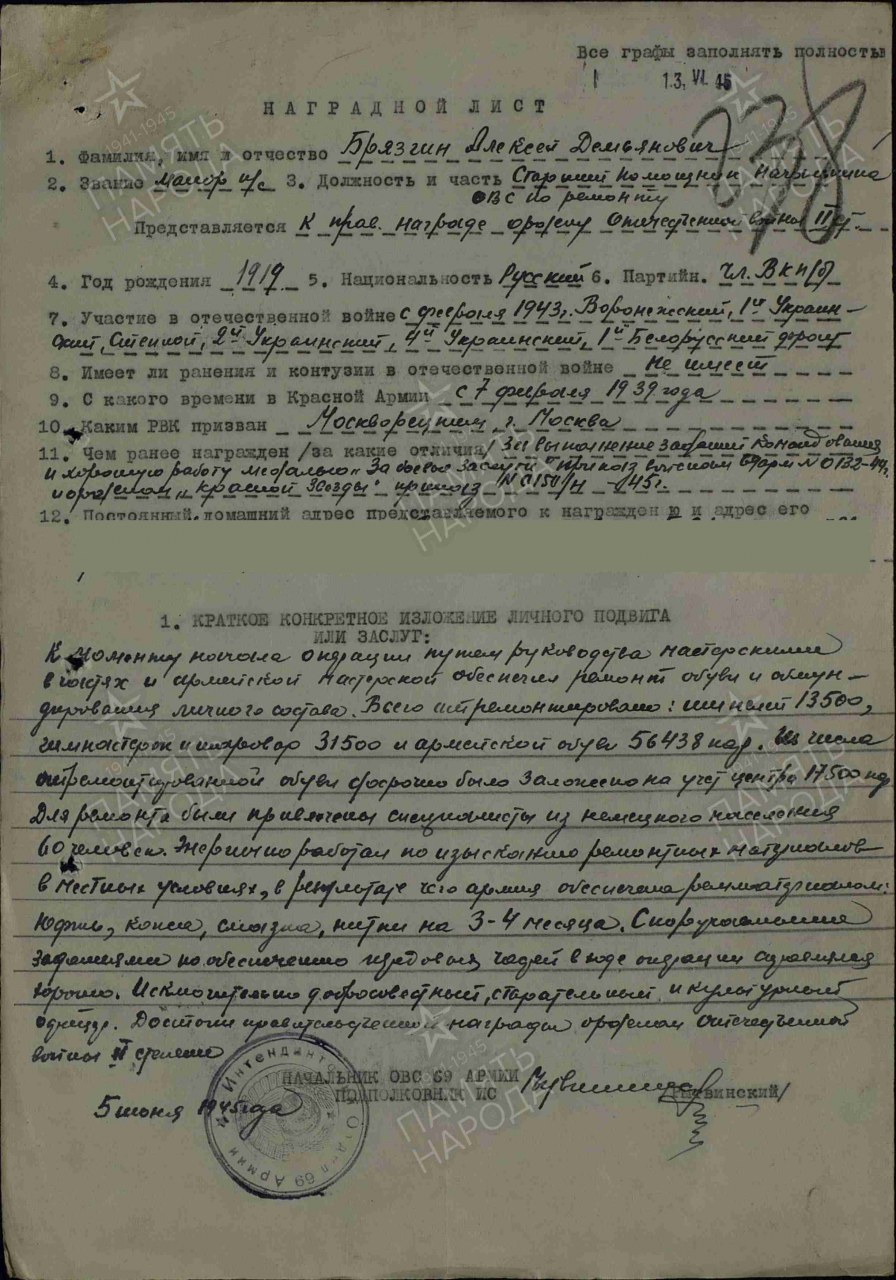 Все графы заполнять полностью
13. VI. 45
338
НАГРАДНОЙ ЛИСТ
1. Фамилия, имя и отчество Брязгин Алексей Демьянович
2. Звание майор и/с 3. Должность и часть Старший помощник Начальника
ОВС по ремонту
Представляется К прав. награде ордену Отечественной войны II ст.
4. Год рождения 1919 5. Национальность Русский 6. Партийн. чл. ВКП(б)
7. Участие в отечественной войне с февраля 1943г. Воронежский, 1й Украин-
ский, Степной, 2й Украинский, 4й Украинский, 1й Белорусский фронт
8. Имеет ли ранения и контузии в отечественной войне не имеет
9. С какого времени в Красной Армии с 7 февраля 1939 года
10. Каким РВК призван Москворецким, г. Москва
11. Чем ранее награжден /за какие отличия/ За выполнение заданий командования
и хорошую работу медалью "За боевые заслуги" приказ войскам 69 арм N 0132-44г.
и орденом "Красной Звезды" приказ N 0150/н -45г.
12. Постоянный домашний адрес представляемого к награждению и адрес его
1. КРАТКОЕ КОНКРЕТНОЕ ИЗЛОЖЕНИЕ ЛИЧНОГО ПОДВИГА
ИЛИ ЗАСЛУГ:
К моменту начала операции путем руководства мастерскими
в частях и армейской мастерской обеспечил ремонт обуви и обмун-
дирования личного состава. Всего отремонтировано: шинелей 13500,
гимнастерок и шаровар 31500 и армейской обуви 56438 пар. Из числа
отремонтированной обуви досрочно было заложено на учет центра 17500 пар
Для ремонта были привлечены специалисты из немецкого населения
60 человек. Энергично работал по изысканию ремонтных материалов
в местных условиях, в результате чего армия обеспечена ремматериалом:
кожа, смазка, нитки на 3-4 месяца. С поручаемыми
заданиями по обеспечению передовых частей в ходе операции справлялся
хорошо. Исключительно добросовестный, старательный и культурный
офицер. Достоин правительственной награды орденом Отечественной
войны II степени
НАЧАЛЬНИК ОВС 69 АРМИИ
ПОДПОЛКОВНИК ИС
5 июня 1945 года
Интендантс Отдел 69 Армии
ПАМЯТЬ НАРОДА
1941-1945